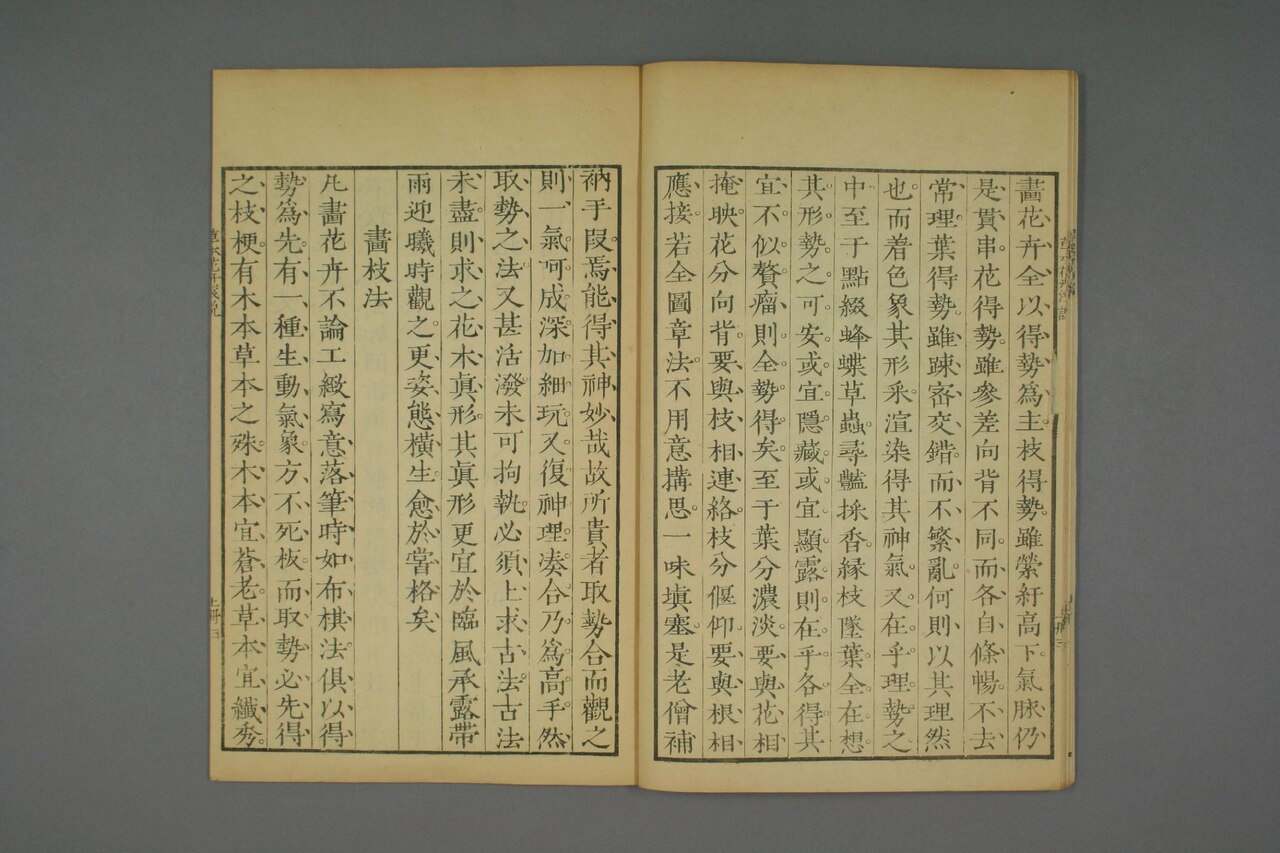 畫花卉全以得勢爲主枝得勢雖縈紆高下氣脉仍
是貫串花得勢雖參差向背不同而各自條暢不去
常理葉得勢雖踈宻交錯而不繁亂何則以其理然
也而着色象其形采渲染得其神氣又在乎理勢之
中至于點綴蜂蝶草蟲尋豔採香縁枝墜葉全在想
其形勢之可安或宜隱藏或宜顯露則在乎各得其
宜不似贅瘤則全勢得矣至于葉分濃淡要與花相
掩映花分向背要與枝相連絡枝分偃仰要與根相
應接若全圖章法不用意搆思一味塡塞是老僧補
衲手叚焉能得其神妙哉故所貴者取勢合而觀之
則一氣呵成深加細玩又復神理凑合乃爲高手然
取勢之法又甚活潑未可拘執必須上求古法古法
未盡則求之花木眞形其眞形更宜於臨風承露帶
雨迎曦時觀之更姿態橫生愈於常格矣
畫枝法
凡畫花卉不論工緻寫意落筆時如布棋法俱以得
勢爲先有一種生動氣象方不死板而取勢必先得
之枝梗有木本草本之殊木本宜蒼老草本宜纖秀